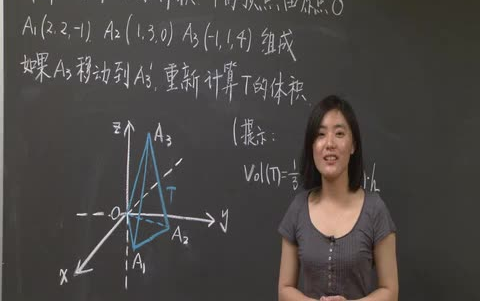 的顶点由原点O
A₁(2,2,-1) A₂(1,3,0) A₃(-1,1,4) 组成
如果A₃移动到A₃', 重新计算T的体积
(提示:
Vol(T)=1/3
·h
z
A₃
T
O
y
A₂
x
A₁